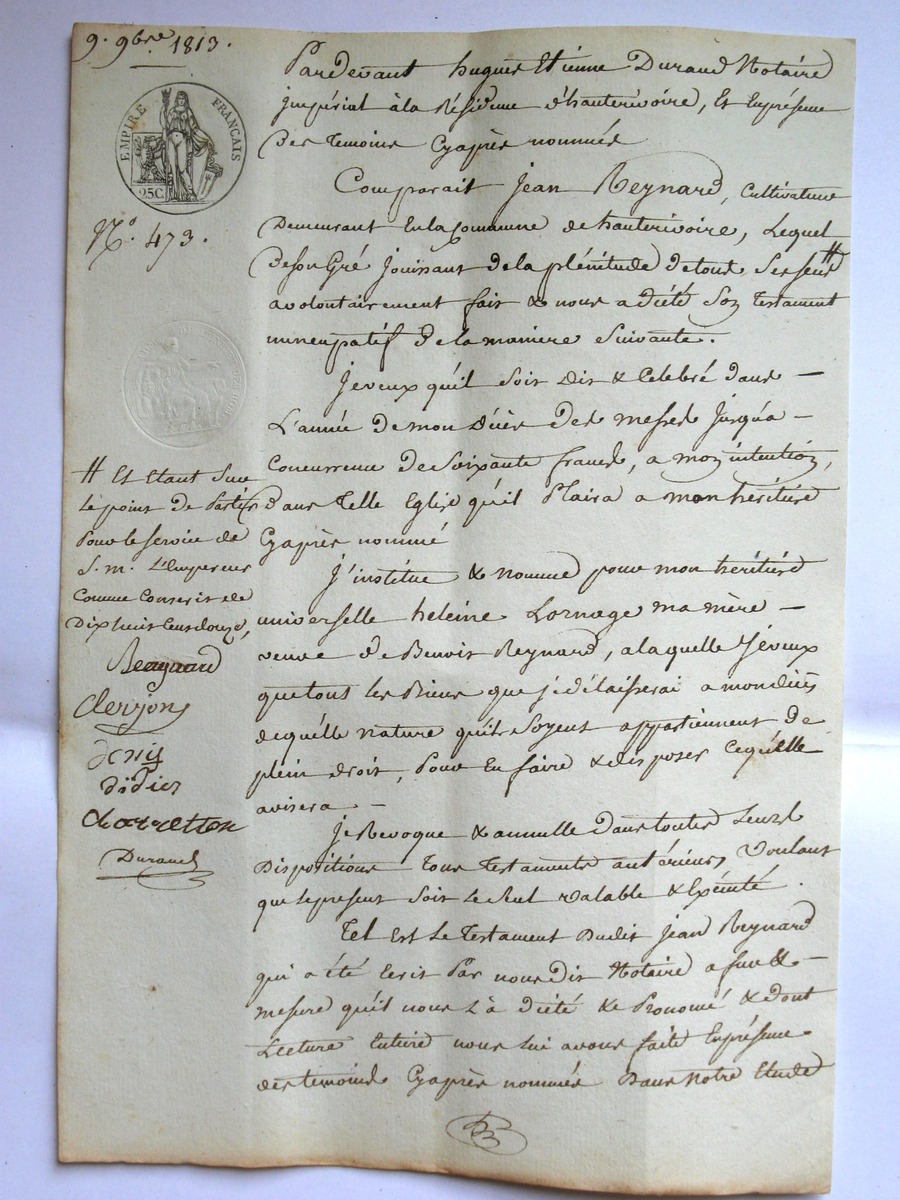 9. 9bre 1813.
EMPIRE FRANÇAIS
25C.
N.° 473.
Pardevant hugues Etienne Durand Notaire
impérial à la Résidence d'hauterivoire, Et Enprésence
Des temoins Cyaprès nommés
Comparait Jean Reynard, Cultivateur
Demeurant Enla Commune de hauterivoire, Lequel
Deson Gré Jouissant delaplénitude Detous Ses sens #
avolontairement fait & nous adicté Son Testament
nuncupatif de lamaniere Suivante.
Jeveux qu'il Soit Dit & Celebré dans —
L'année De mon Décès Des messes Jusqu'a —
Concurrence de Soixante francs, a mon intention,
Dans Telle Eglise qu'il Plaira a monheritiere
Cyaprès nommé
J'institue & nomme pour mon heritiere
universelle heleine Lornage ma mère —
veuve de Benoit Reynard, alaquelle Jeveux
quetous les Biens que je délaisserai a mondécès
dequélle nature qu'ils Soyent appartiennent de
plein droit, Pour En faire & disposer Cequ'elle
avisera —
Je Revoque & annulle Dans toutes Leurs
Dispositions Tous Testaments antérieurs, Voulant
que leprésent Soit Le Seul valable & Exécuté.
Tel Est Le Testament Dudit Jean Reynard
qui a été Ecrit Par nousdit Notaire afur & —
mesure qu'il nous L'a dicté & Prononcé & dont
Lecture Entiere nous lui avons faite Enprésence
des temoins Cyaprès nommés Dans Notre Etude
# Et Etant Sur
le point de Partir
Pour le service de
S. M. L'Empereur
Comme Conscrit de
Dix huit Cent douze,
Reynard
Clerjon
denis
didier
charretton
Durand